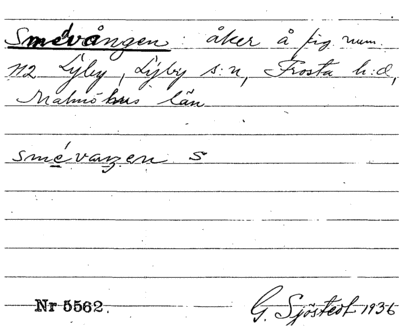 Smedvången : åker å fig. num.
112 Lyby, Lyby s:n, Frosta h:d,
Malmöhus län
smévaŋen S
Nr 5562.
G. Sjöstedt 1936